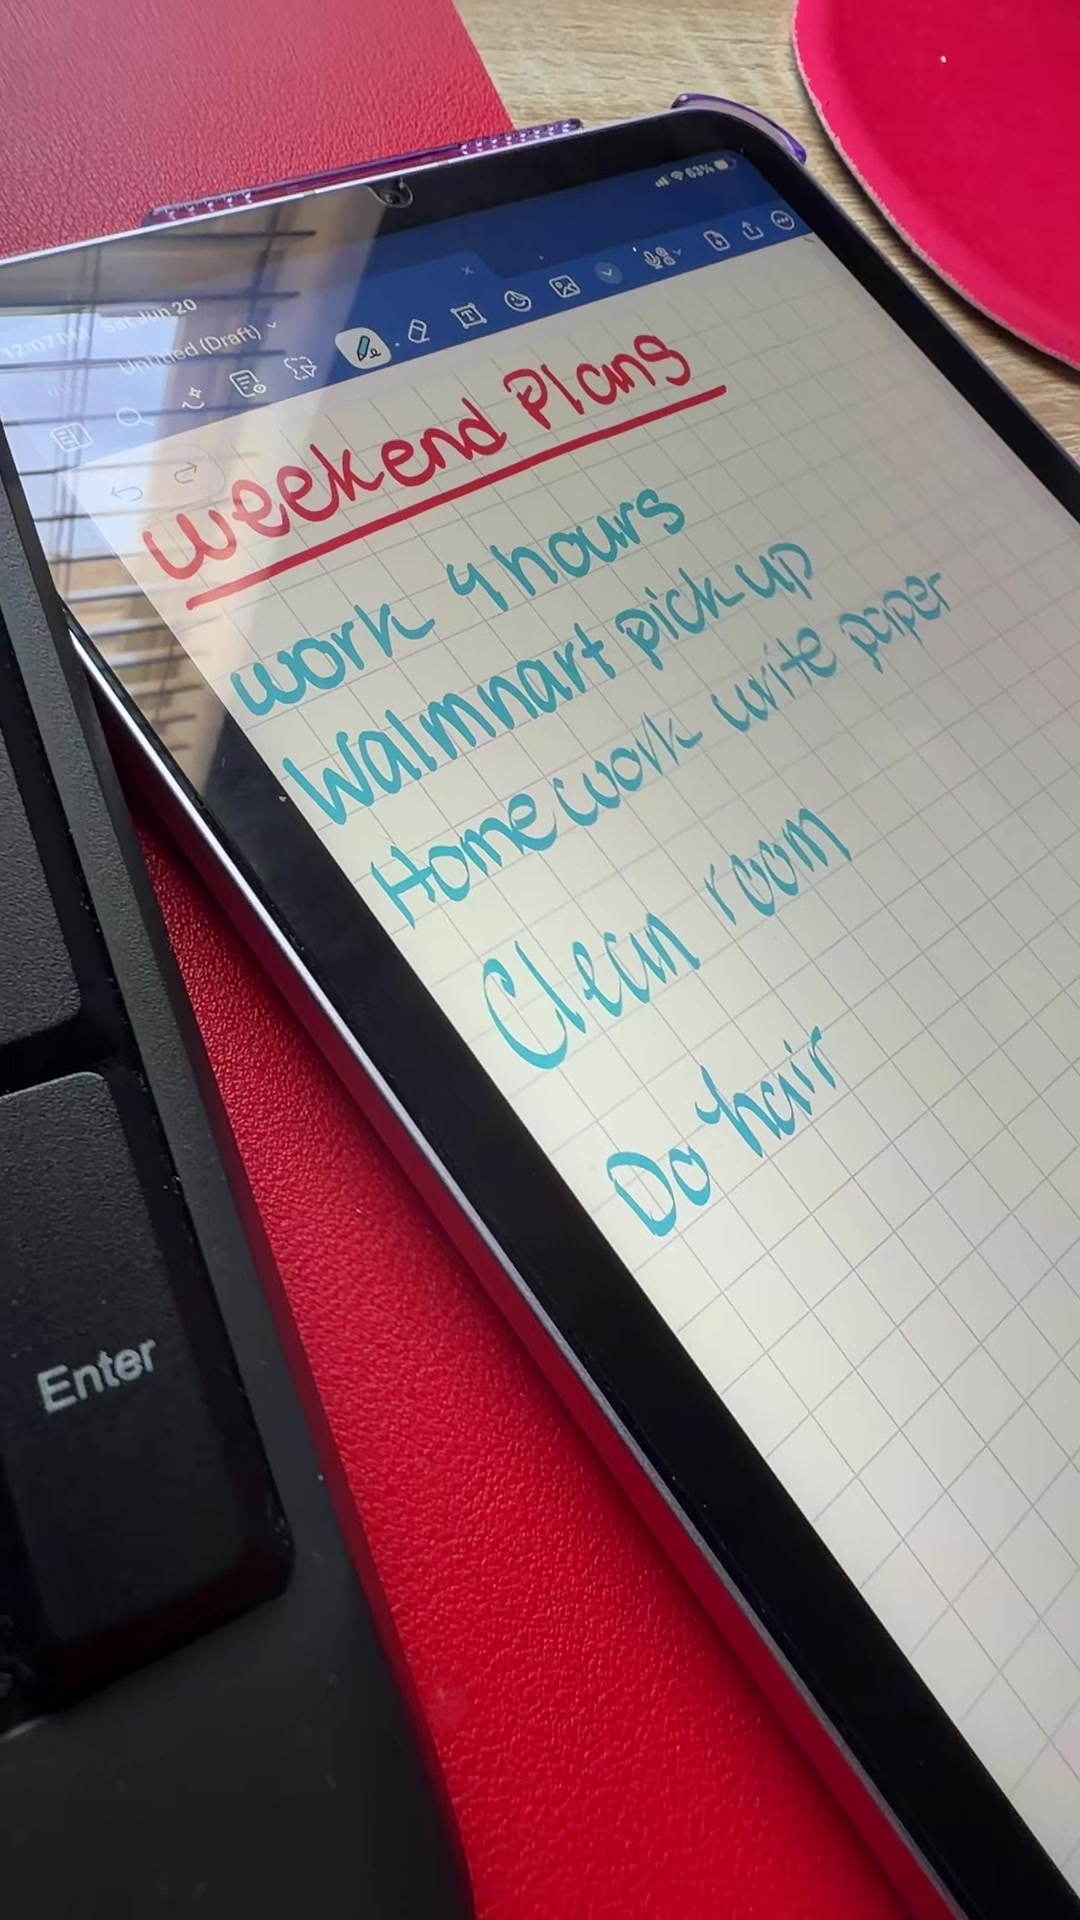 63%
12:07PM Sat Jun 20
Untitled (Draft)
weekend Plans
work 4 hours
Walmnart pick up
Homework write paper
Clean room
Do hair
Enter